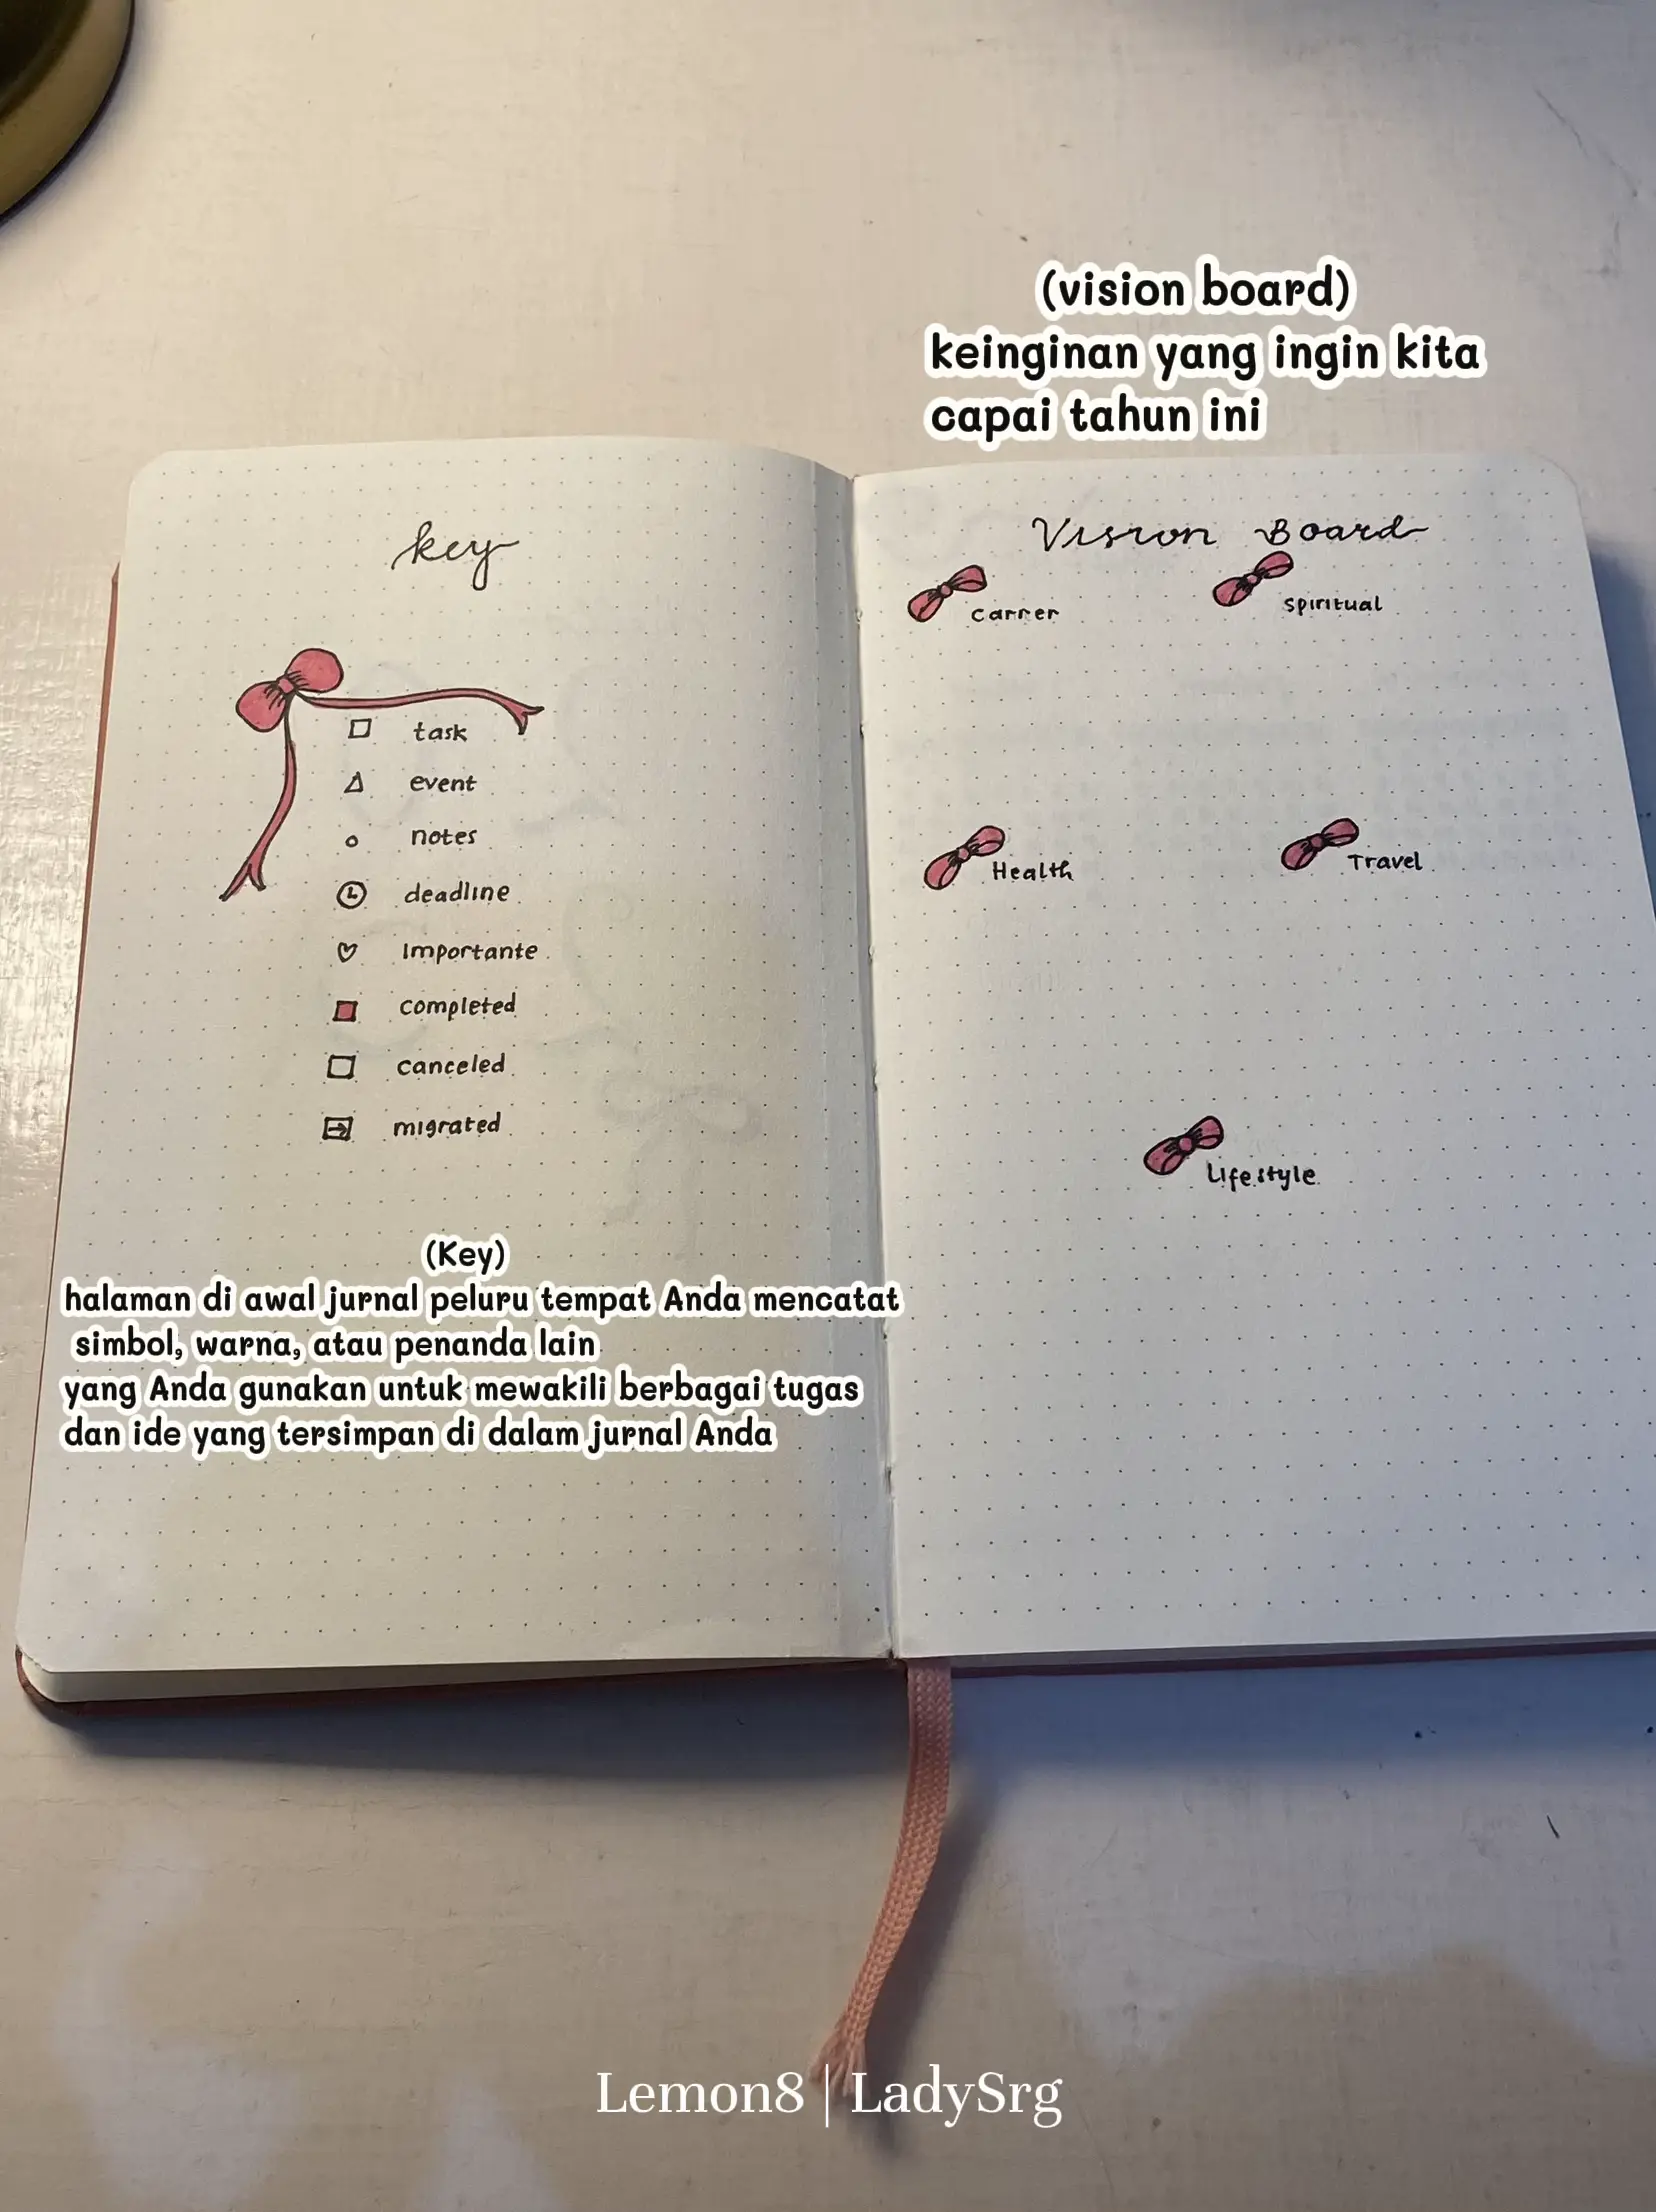 (vision board)
keinginan yang ingin kita
capai tahun ini
key
task
event
notes
deadline
Importante
completed
canceled
migrated
(Key)
halaman di awal jurnal peluru tempat Anda mencatat
simbol, warna, atau penanda lain
yang Anda gunakan untuk mewakili berbagai tugas
dan ide yang tersimpan di dalam jurnal Anda
Vision Board
Carrer
Spiritual
Health
Travel
Lifestyle
Lemon8 | LadySrg